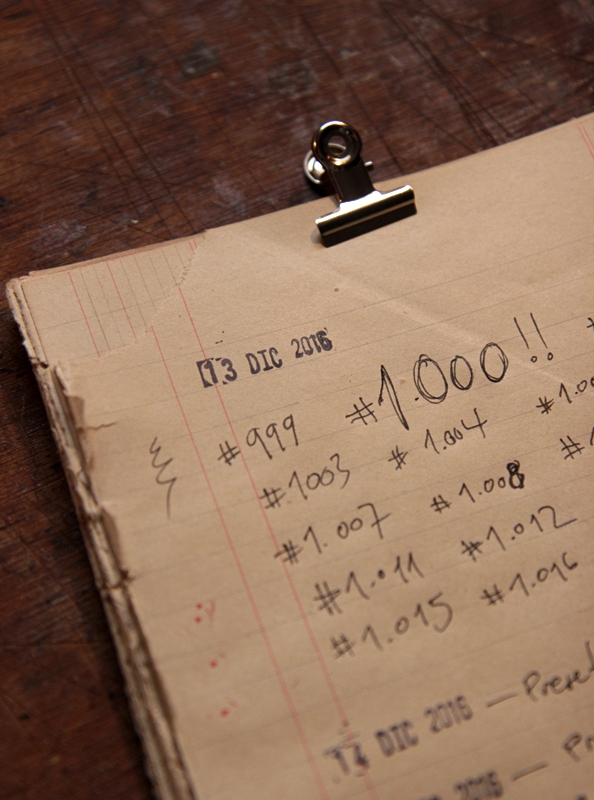 13 DIC 2016
#999 #1.000!!
#1003 #1.004
#1.007 #1.008
#1.011 #1.012
#1.015 #1.016
14 DIC 2016 —
2016 —